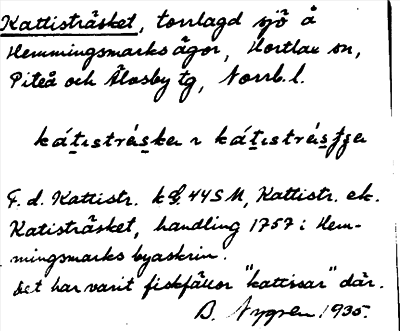 Kattisträsket, torrlagd sjö å
Hemmingsmarks ägor, Hortlax sn,
Piteå och Älvsby tg, Norrb. l.
kátistrǽsker ~ kátistrǽsʃer
F. d. Kattistr. k 44SM, Kattistr. ek.
Katisträsket, handling 1757 i Hem-
mingsmarks byaskrin.
Det har varit fiskfällor "kattisar" där.
B. Nygren 1935.